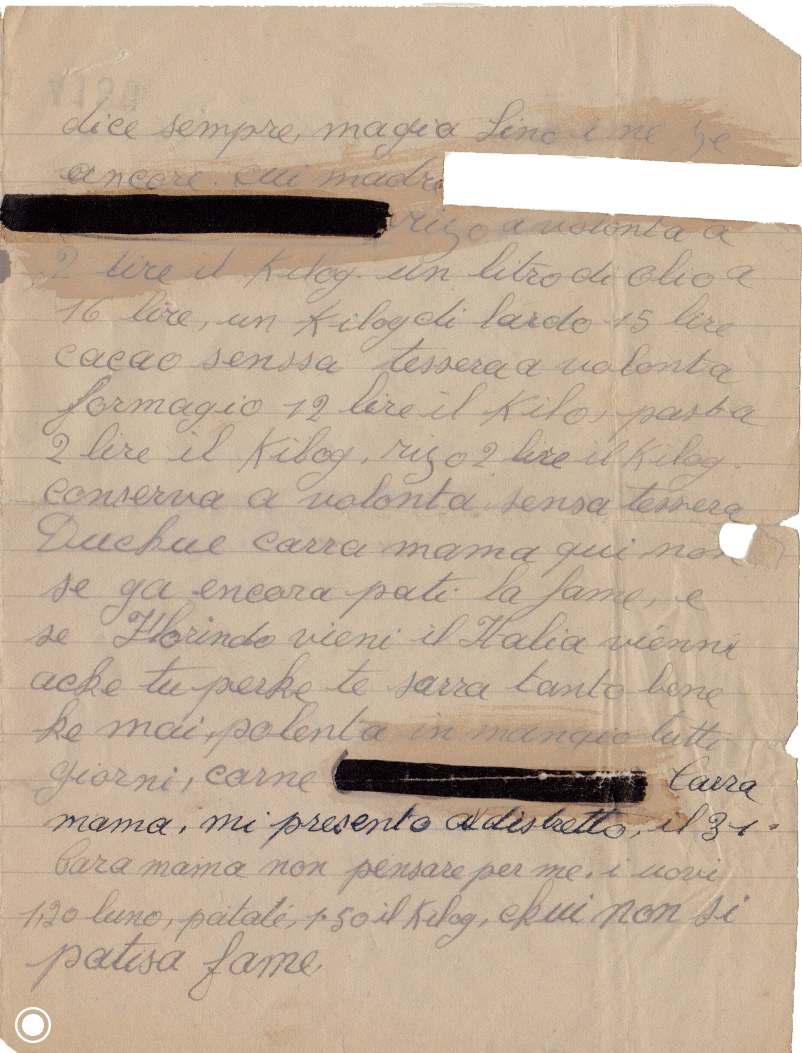 dice sempre, magia Lino i ne ge
ancore. cui madre
rizo a volonta a
2 lire il Kilog. un litro di olio a
16 lire, un Kilog di lardo 15 lire
cacao senssa tessera a volonta
formagio 12 lire il Kilo, pasta
2 lire il Kilog, rizo 2 lire il Kilog.
conserva a volonta sensa tessera
Duchue carra mama qui non
se ga encora pati la fame, e
se Florindo vieni il Italia vienni
acke tu perke te sarra tanto bene
ke mai, polenta in mangio tutti
giorni, carne Carra
mama, mi presento al distretto, il 31.
Cara mama non pensare per me. i uovi
1,20 luno, patate, 1.50 il Kilog, chui non si
patisa fame,